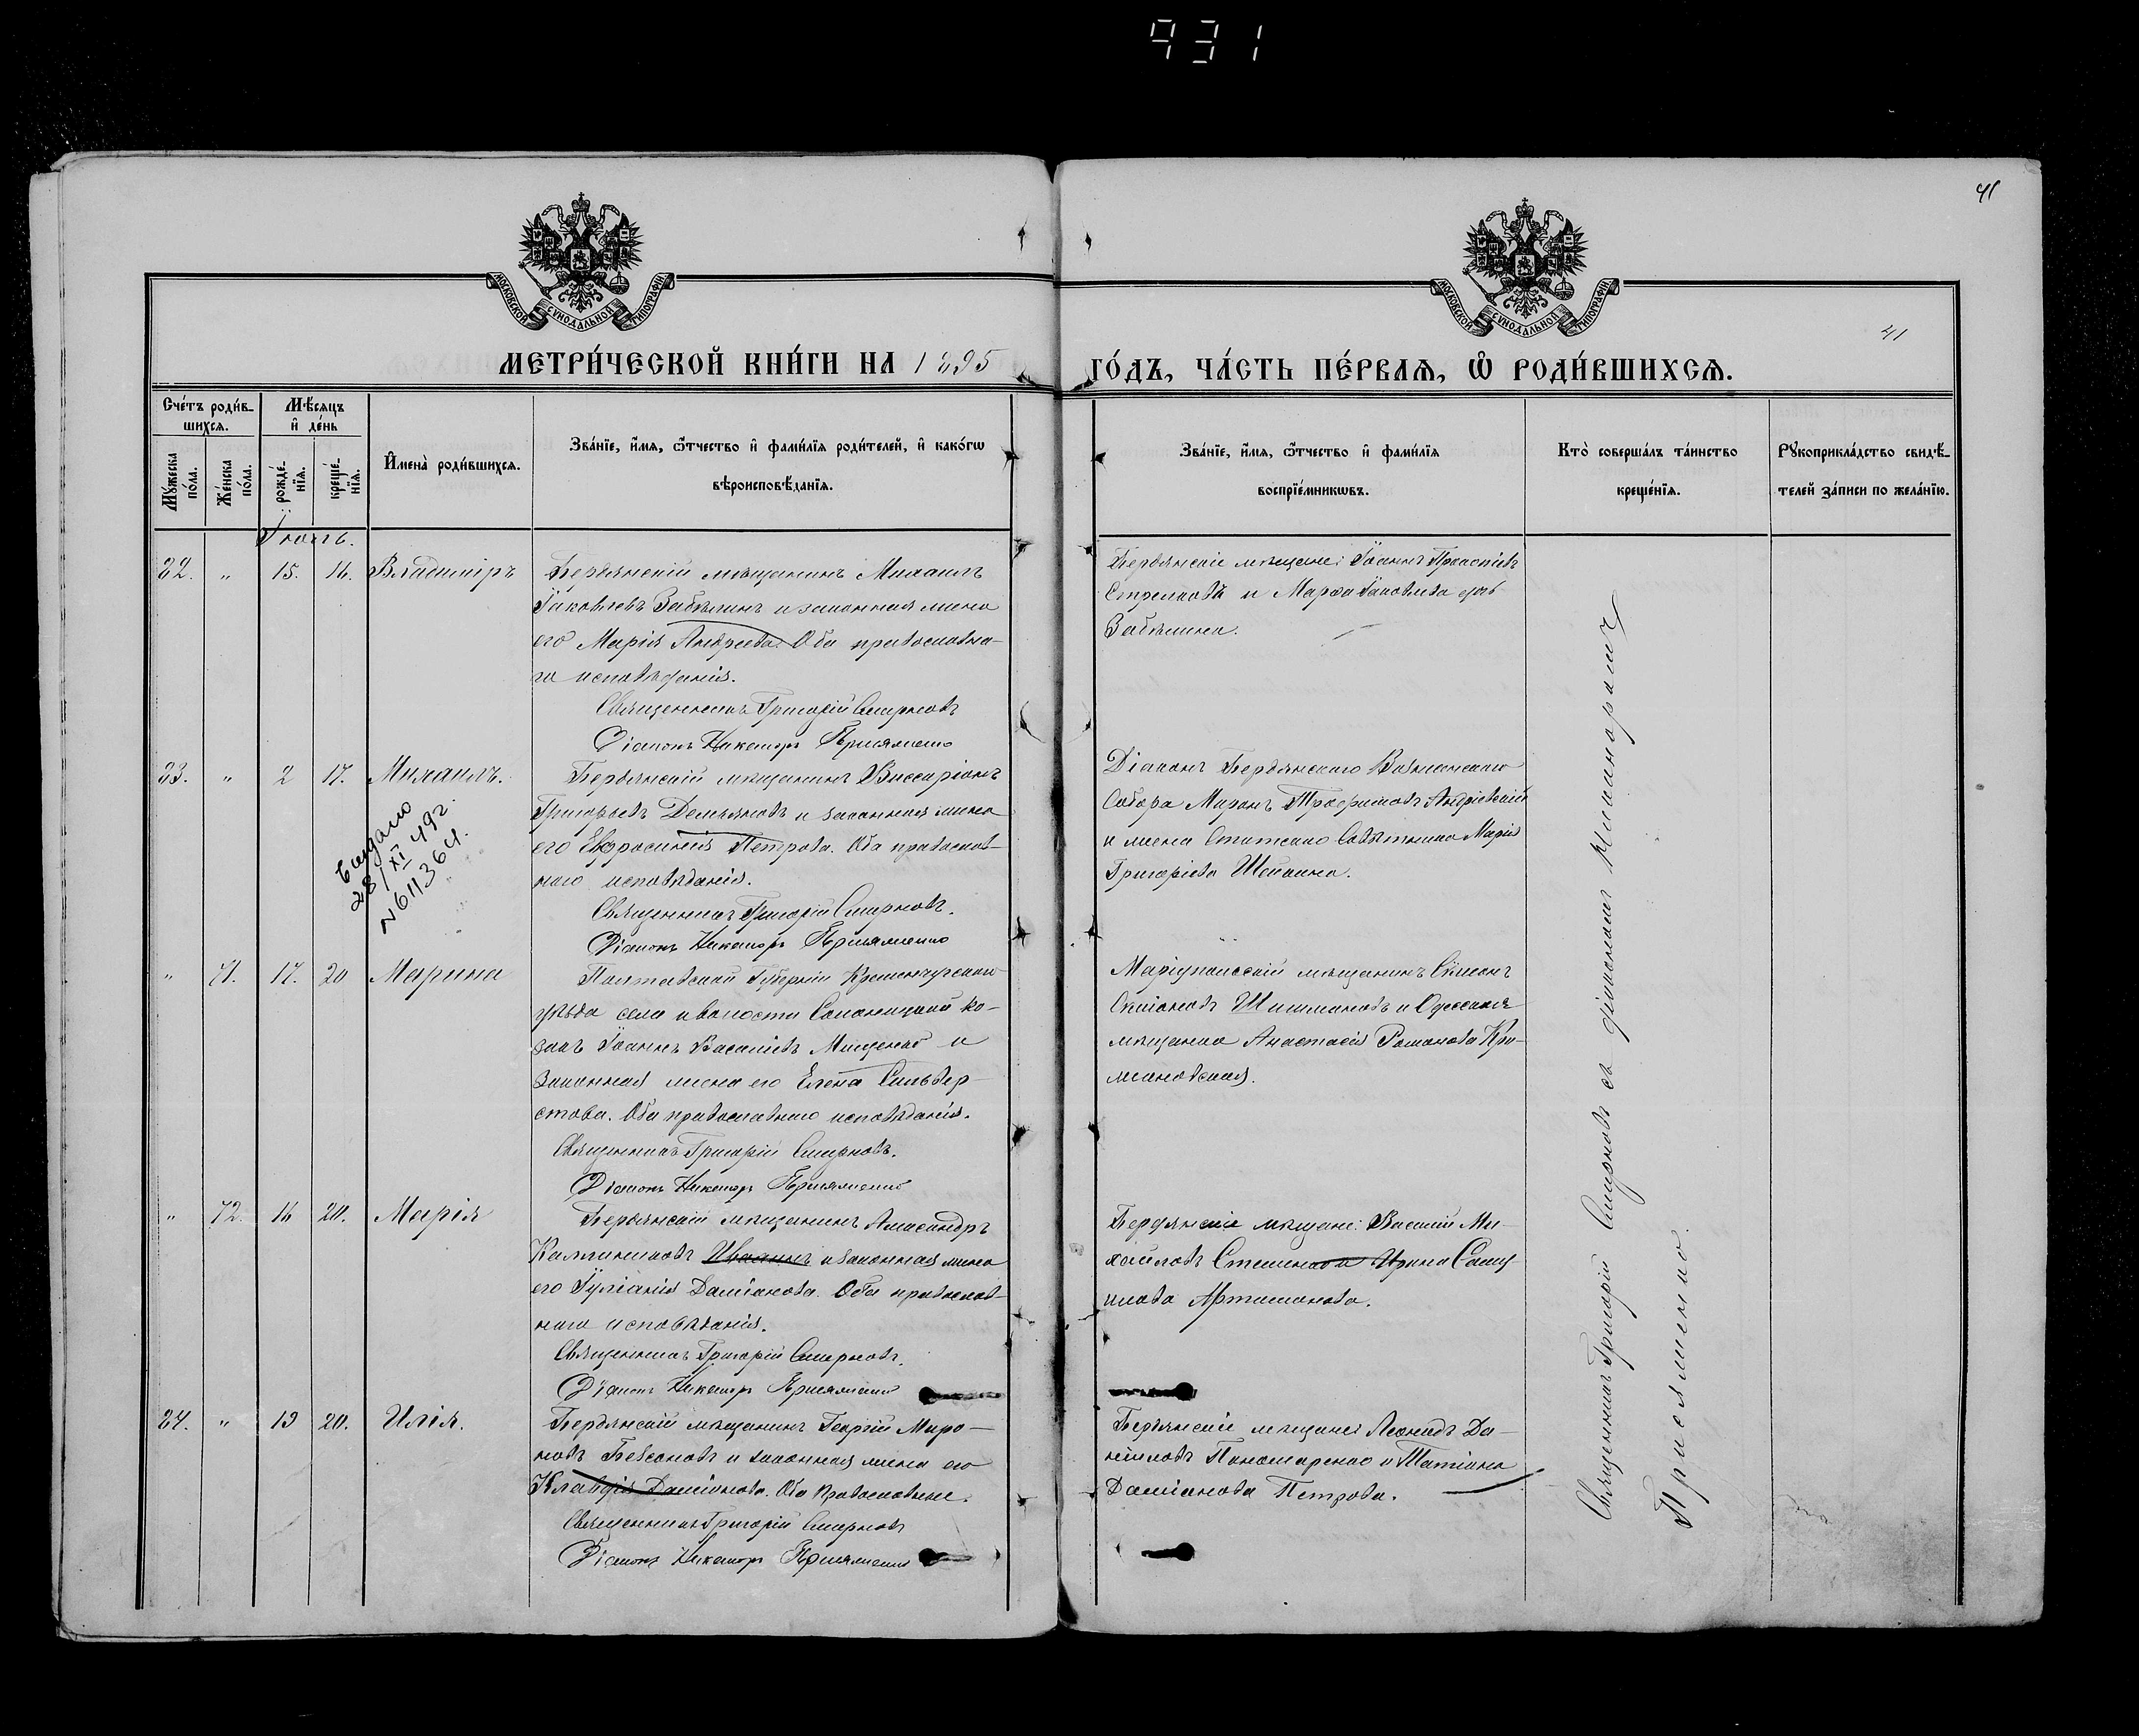 931
41
МОСКОВСКОЙ СѴНОДАЛЬНОЙ ТИПОГРАФІИ
МОСКОВСКОЙ СѴНОДАЛЬНОЙ ТИПОГРАФІИ
41
МЕТРИ́ЧЕСКОЙ КНИ́ГИ НА 1895 ГО́ДЪ, ЧА́СТЬ ПЕ́РВАѦ, Ѡ҆ РОДИ́ВШИХСѦ.
Сче́тъ роди́в-
шихсѧ.
Мꙋ́жеска по́ла.
Же́нска по́ла.
Мѣ́сѧцъ
и҆ де́нь
рожде́-
нїѧ.
креще́-
нїѧ.
И҆мена̀ роди́вшихсѧ.
Зва́нїе, и҆́мѧ, ѻ҆́тчество и҆ фами́лїѧ роди́телей, и҆ како́гѡ
вѣроисповѣ́данїѧ.
Зва́нїе, и҆́мѧ, ѻ҆́тчество и҆ фами́лїѧ
воспрїе́мникѡвъ.
Кто̀ соверша́лъ та́инство
креще́нїѧ.
Рꙋкоприкла́дство свидѣ́-
телей за́писи по жела́нїю.
82. " 15. 16. Владиміръ
Бердянскій мѣщанинъ Михаилъ
Іаковлевъ Забѣлинъ и законная жена
его Марія Андреева. Оба православна-
го исповѣданія.
Священникъ Григорій Смирновъ
Діаконъ Никаноръ Присяженко
Бердянскіе мѣщане: Іоаннъ Прокопіевъ
Стрелковъ и Марѳа Іаковлева
Забѣлина.
83. " 2 17. Михаилъ.
Выдано
28/XI 49г.
N 611364.
Бердянскій мѣщанинъ Виссаріонъ
Григорьевъ Демьяновъ и законная жена
его Евфросинія Петрова. Оба православ-
наго исповѣданія.
Священникъ Григорій Смирновъ.
Діаконъ Никаноръ Присяженко
Діаконъ Бердянскаго Вознесенскаго
Собора Трофимовъ
и жена Статскаго Совѣтника Марія
Григоріева
" 71. 17. 20 Марина
Полтавской Губерніи Кременчугскаго
уѣзда села и волости ко-
закъ Іоаннъ Василіевъ Мищенко и
законная жена его Елена Сильвер-
стова. Оба православнаго исповѣданія.
Священникъ Григорій Смирновъ.
Діаконъ Никаноръ Присяженко
Маріупольскій мѣщанинъ Симеонъ
Шишмановъ и Одесская
мѣщанка Анастасія Романова Кри-
жановская.
" 72. 16 20. Марія
Бердянскій мѣщанинъ Александръ
Каллиниковъ и законная жена
его Іуліанія Даміанова. Оба православ-
наго исповѣданія.
Священникъ Григорій Смирновъ.
Діаконъ Никаноръ Присяженко
Бердянскіе мѣщане: Василій Ми-
хайловъ и Ирина Саму-
илова Артамонова.
84. " 19 20. Илія.
Бердянскій мѣщанинъ Георгій Миро-
новъ Безсоновъ и законная жена его
Клавдія Даміанова. Оба Православные.
Священникъ Григорій Смирновъ
Діаконъ Никаноръ Присяженко
Бердянскіе мѣщане Леонидъ Да-
ніиловъ Пономаренко и Татіана
Даміанова Петрова.
Священникъ Григорій Смирновъ съ діакономъ Никаноромъ
Присяженко.